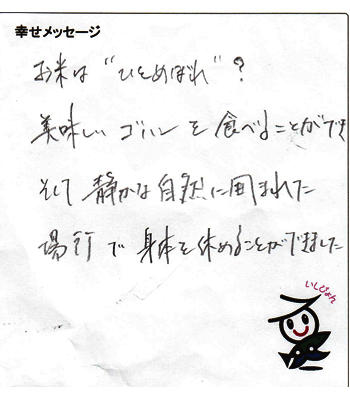 幸せメッセージ
お米は“ひとめぼれ”？
美味しいゴハンを食べることができ
そして静かな自然に囲まれた
場所で身体を休めることができました
いしぴょん